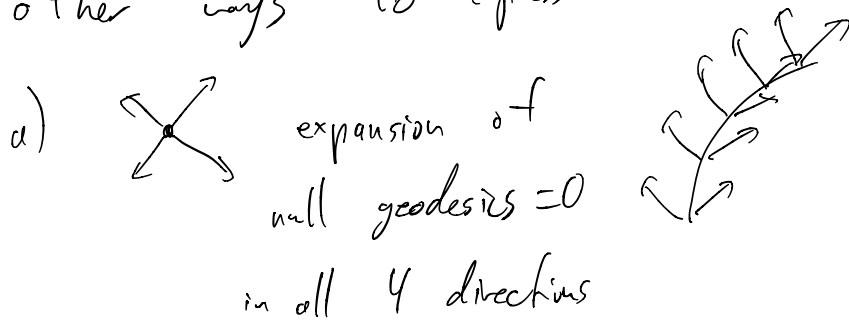 other ways to
a) expansion of
null geodesics =0
in all 4 directions